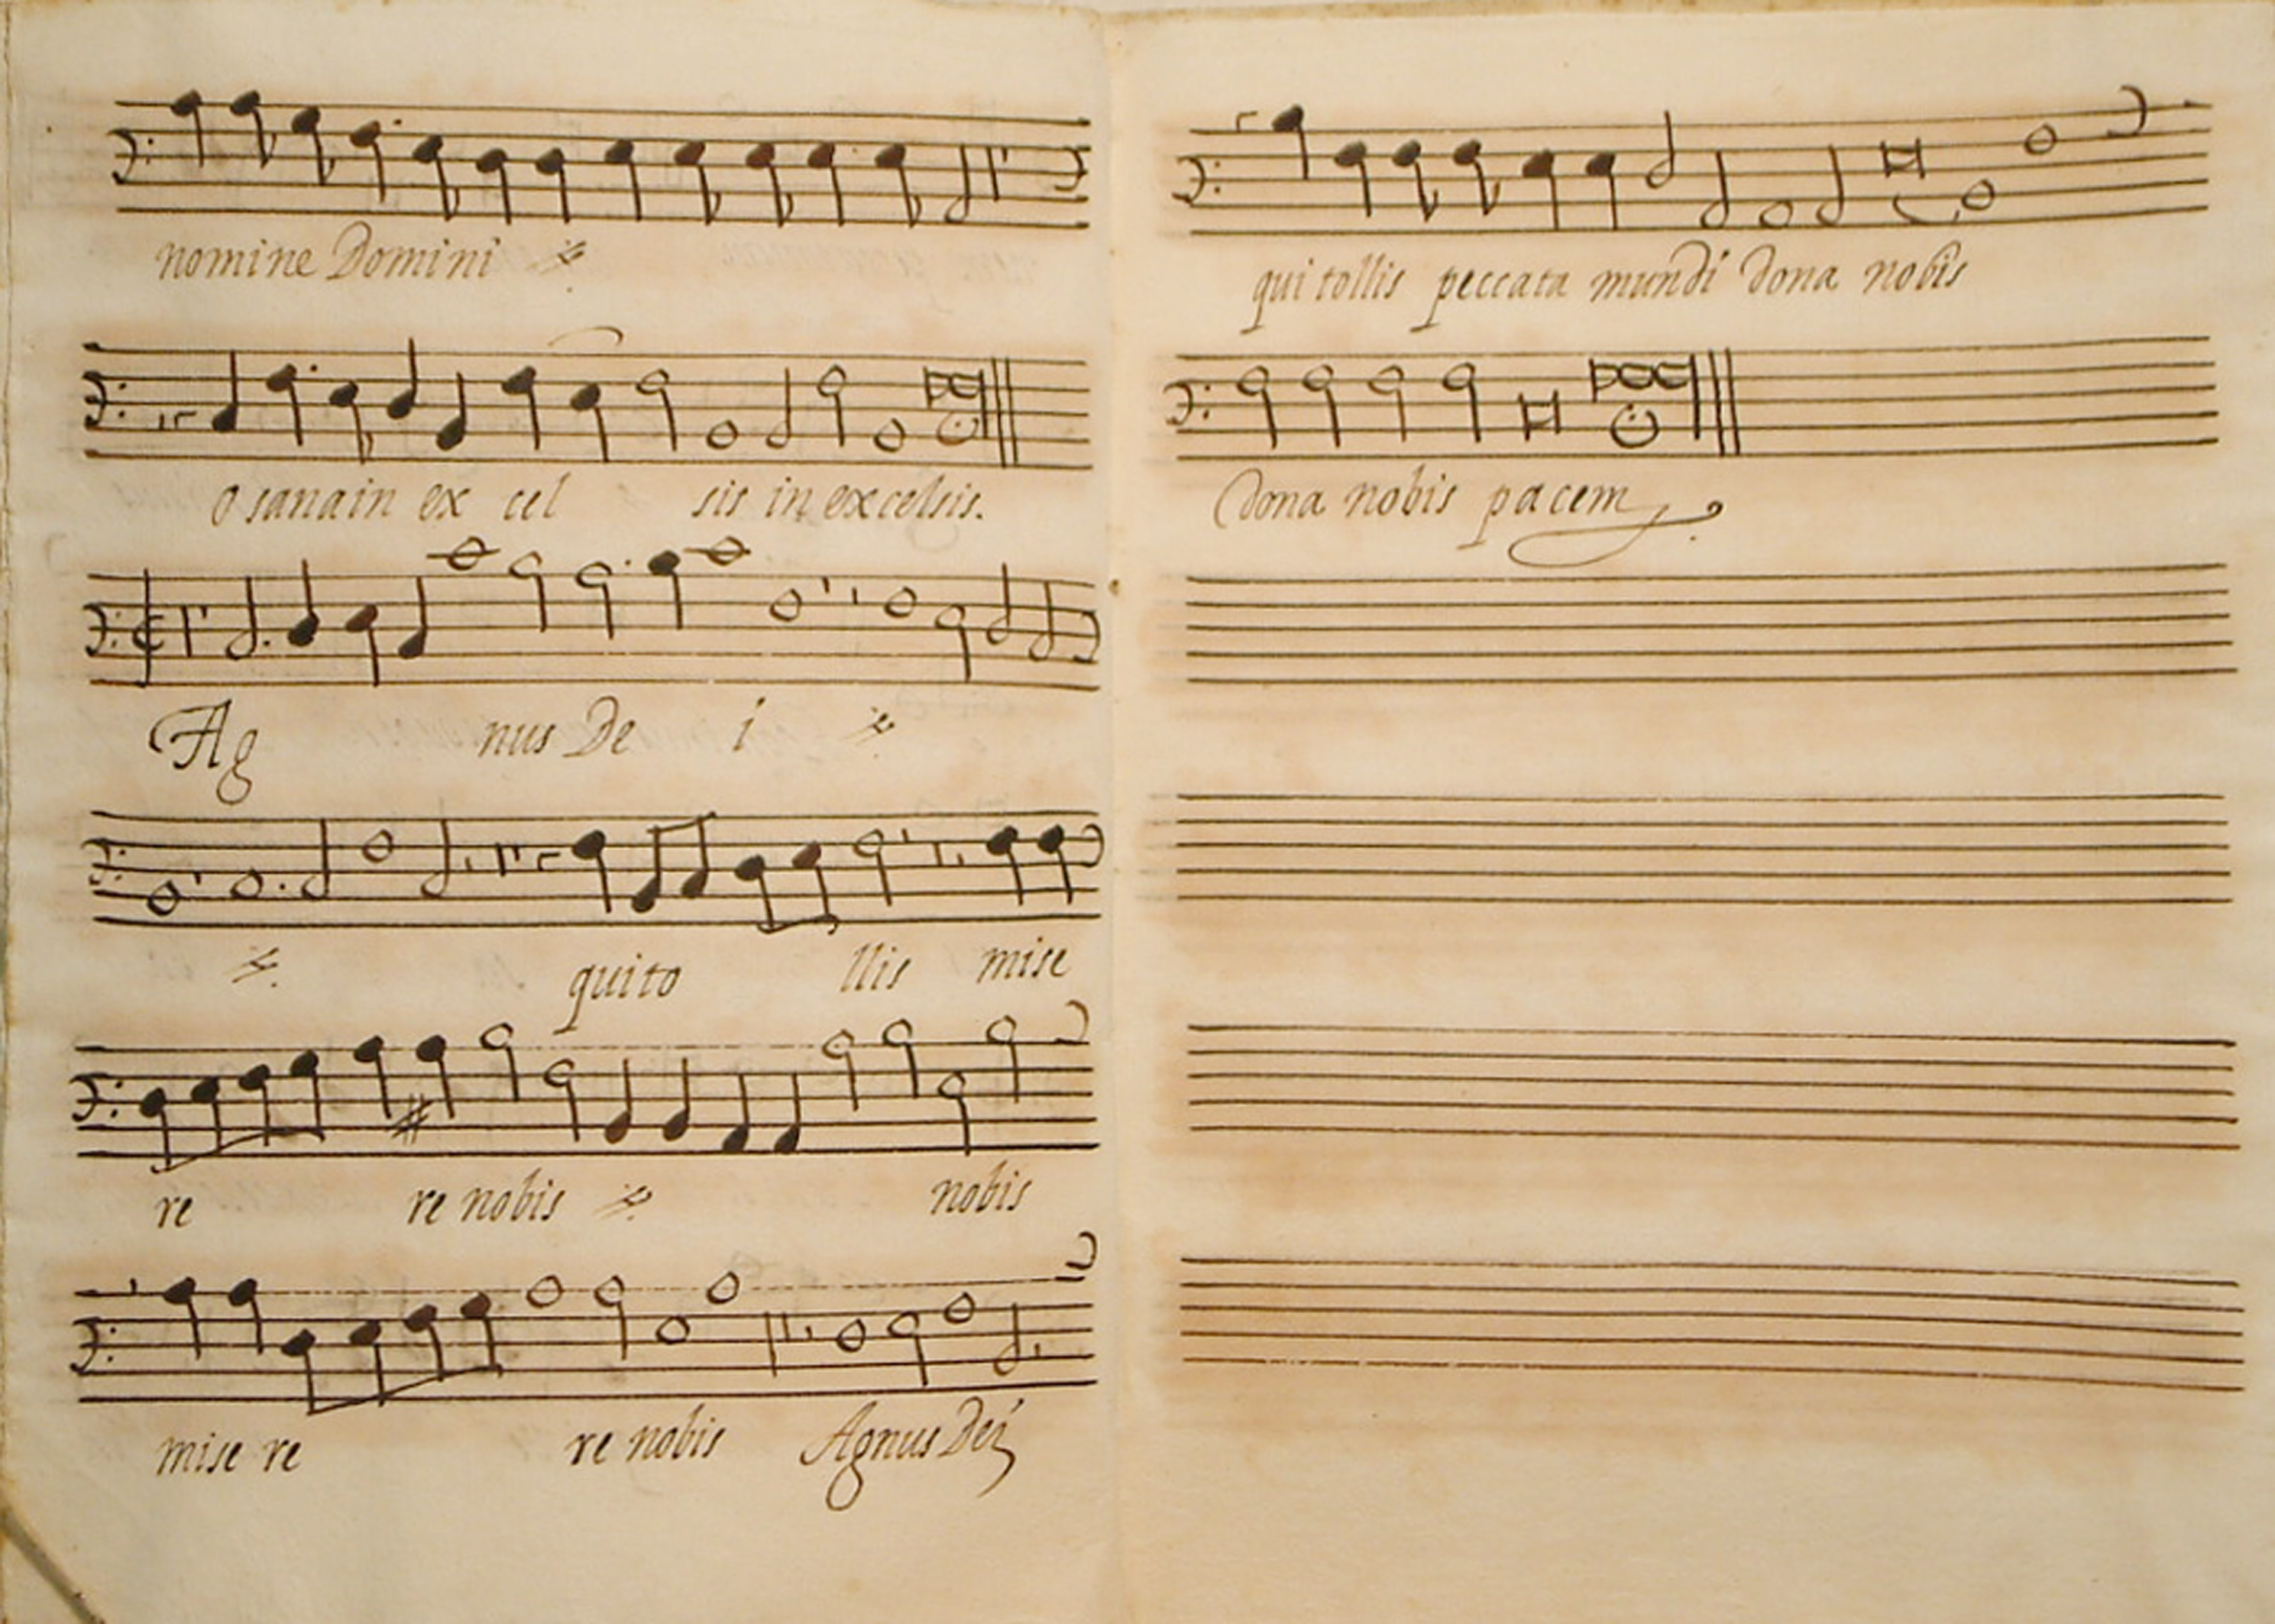 nomine Domini
O sana in ex cel sis in excelsis.
Ag nus De i
qui to llis mise
re re nobis nobis
mise re re nobis Agnus Dei
qui tollis peccata mundi dona nobis
dona nobis pacem